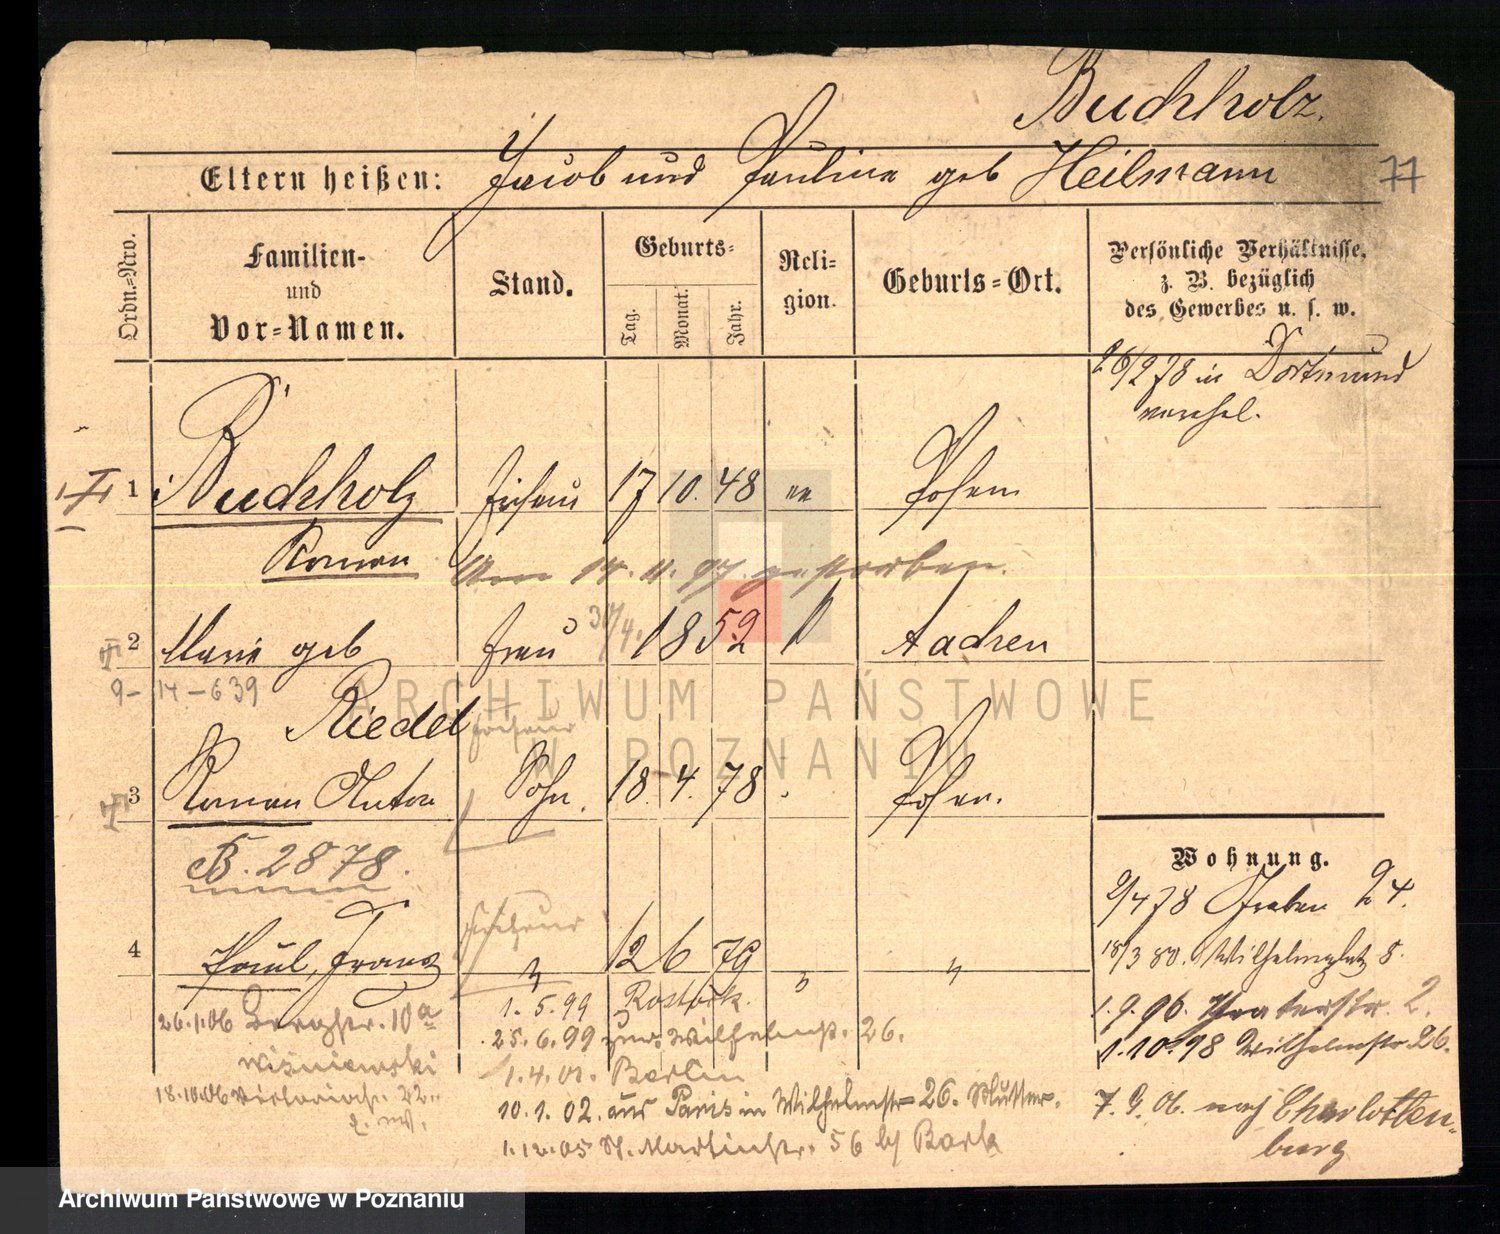 Buchholz.
Eltern heißen: Jacob und Pauline geb Heilmann
77
Ordn.=Nro.
Familien-
und
Vor=Namen.
Stand.
Geburts=
Tag.
Monat.
Jahr.
Reli=
gion.
Geburts=Ort.
Persönliche Verhältnisse,
z. B. bezüglich
des Gewerbes u. s. w.
26/2 78 in Dortmund
verehel.
1 Buchholz Friseur 17 10. 48 Posen
Roman
Am 14. 4. 97. gestorben.
2 Marie geb Frau 30/4. 1852 Aachen
9-14-639
Riedel
Friseur
3 Roman Anton Sohn. 18. 4. 78 Posen.
B. 2878.
Wohnung.
9/4 78 Graben 24.
Friseur
4 Paul, Franz " 12 6 79 " "
18/3 80. Wilhelmsplatz 8.
1. 5. 99 Rostock.
26.1.06 Bergstr. 10a
1. 9. 96. Theaterstr. 2.
25. 6. 99 zur. Wilhelmstr. 26.
1. 10. 98 Wilhelmstr. 26.
Wisniewski
1. 4. 01. Berlin
18.10.06 Victoriastr. 22
10. 1. 02. aus Paris in Wilhelmstr 26. Mutter.
7. 9. 06. nach Charlotten-
burg
1. 12. 05 St. Martinstr. 56 b/ Bark
ARCHIWUM PAŃSTWOWE
W POZNANIU
Archiwum Państwowe w Poznaniu